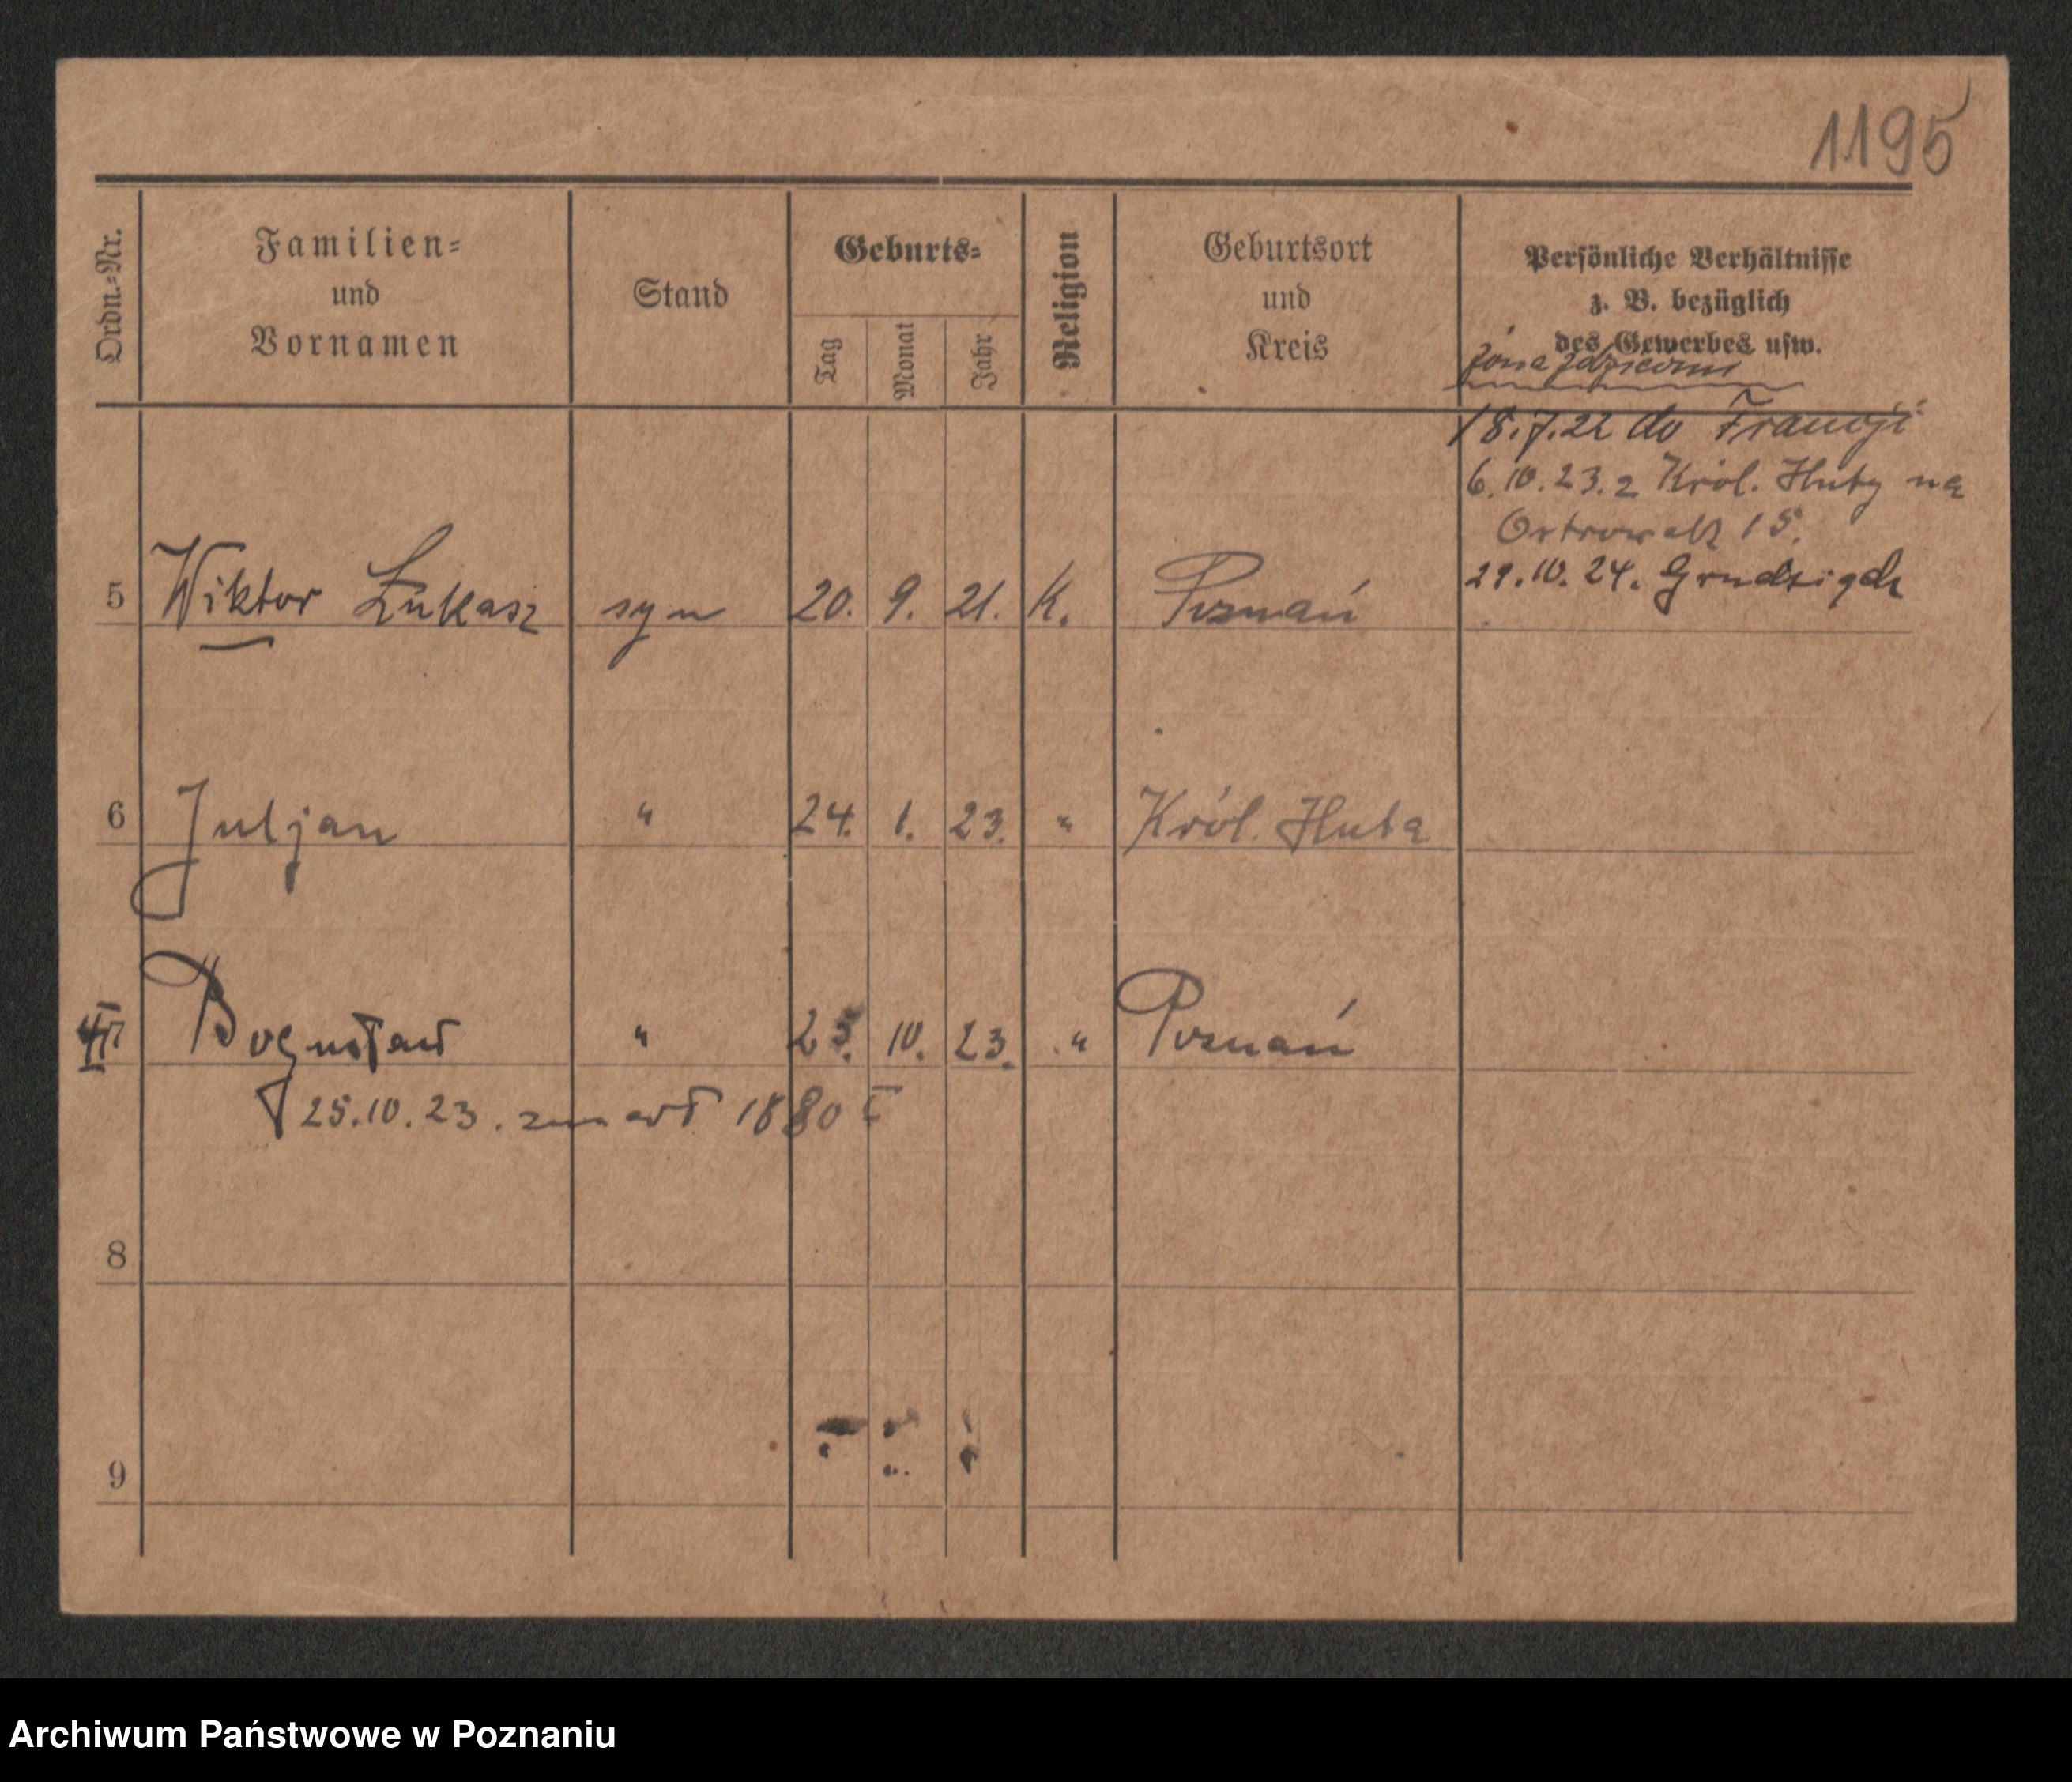 1195
Ordn.=Nr.
Familien=
und
Vornamen
Stand
Geburts=
Tag
Monat
Jahr
Religion
Geburtsort
und
Kreis
Persönliche Verhältnisse
z. B. bezüglich
des Gewerbes usw.
żona z dziećmi
18.7.22 do Francji
6.10.23. z Król. Huty na
Ostrowek 15.
29.10.24. Grudziądz
5 Wiktor Łukasz syn 20. 9. 21. K. Poznań
6 Juljan " 24. 1. 23. " Król. Huta
Bogusław " 25. 10. 23. " Poznań
25.10.23. zmarł 1880 I
8
9
Archiwum Państwowe w Poznaniu